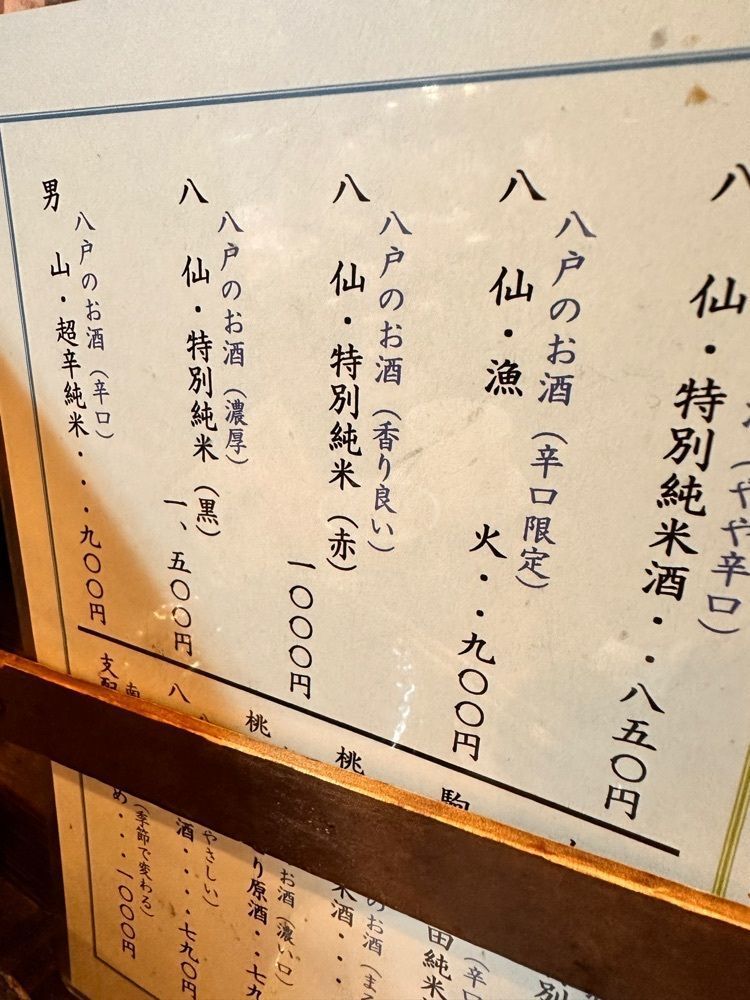 八戸のお酒（やや辛口）
八仙・特別純米酒・・八五〇円
八戸のお酒（辛口限定）
八仙・漁火・・九〇〇円
八戸のお酒（香り良い）
八仙・特別純米（赤）一〇〇〇円
八戸のお酒（濃厚）
八仙・特別純米（黒）一、五〇〇円
八戸のお酒（辛口）
男山・超辛純米・・・九〇〇円
特別
（辛口
駒
田純米
のお酒（まろ
桃
米酒・・・
お酒（濃い口）
桃
り原酒・・七九
やさしい）
八
酒・・・・七九〇円
南
（季節で変わる）
支配
め・・・一〇〇〇円